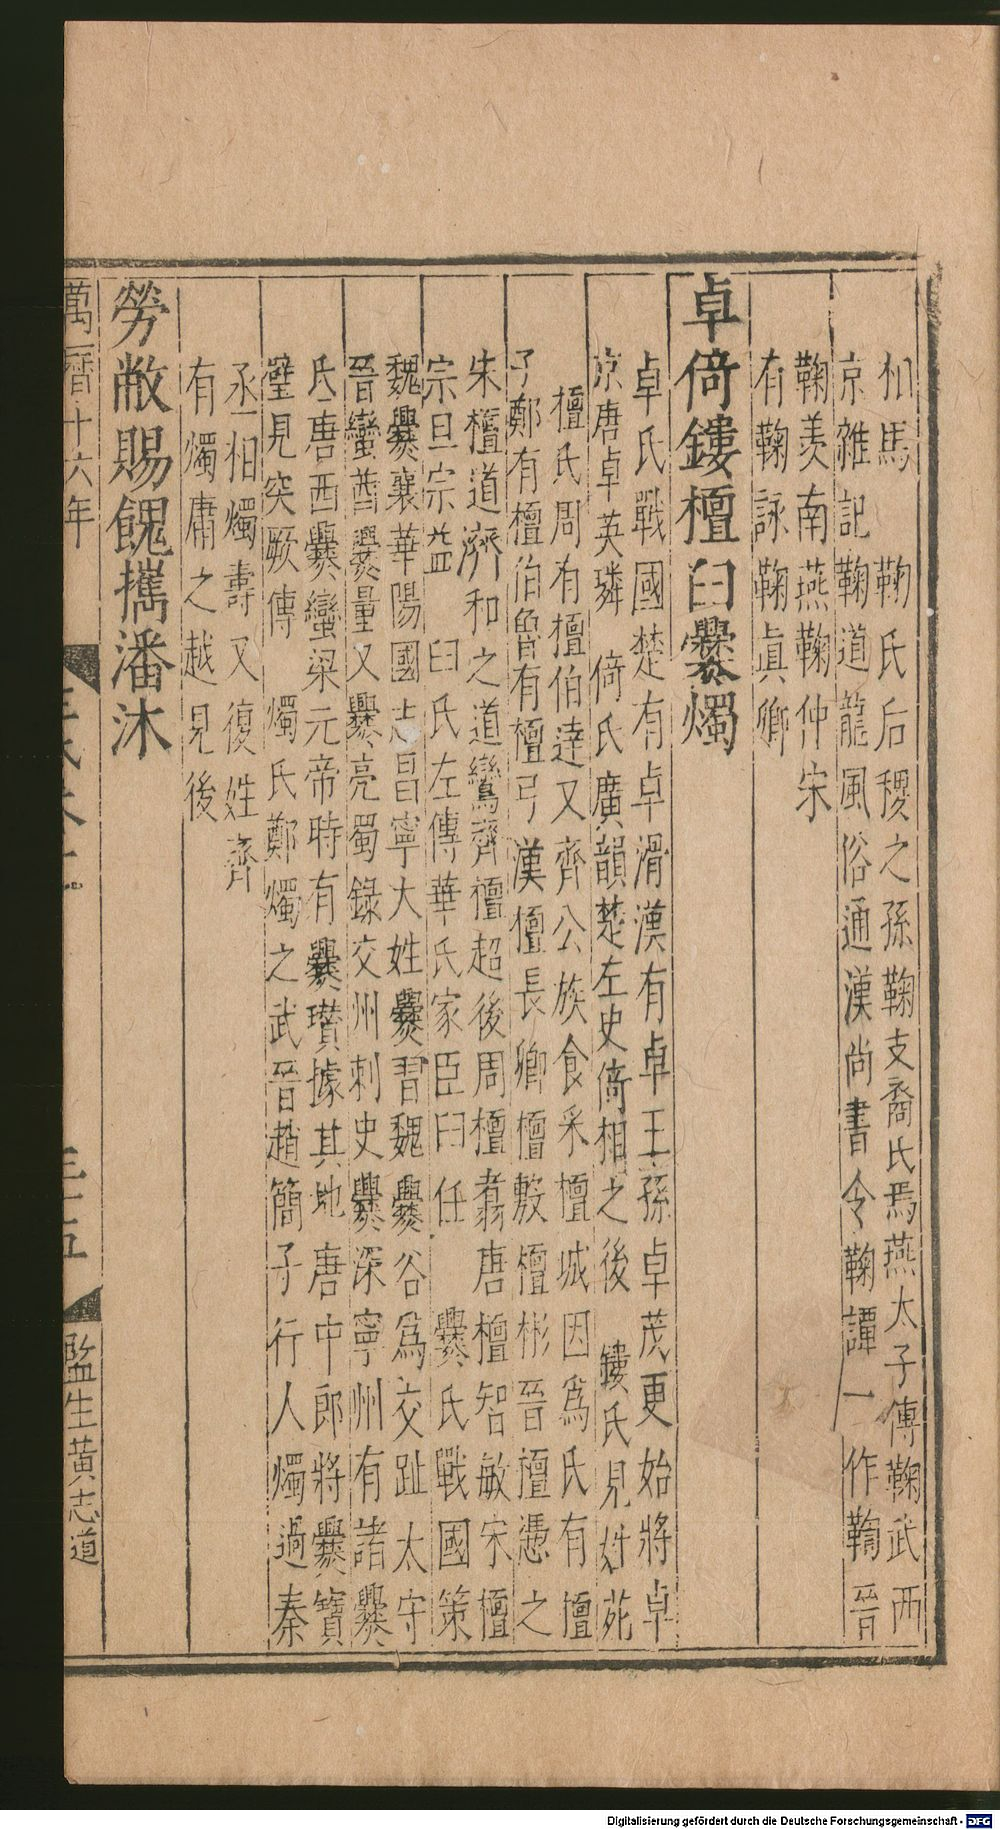 相馬　鞠氏后稷之孫鞠支裔氏焉燕太子傅鞠武西
京雜記鞠道龍風俗通漢尚書令鞠譚一作鞫晉
鞠羨南燕鞠仲宋
有鞠詠鞠眞卿
卓倚鏤檀臼爨燭
卓氏戰國楚有卓滑漢有卓王孫卓茂更始將卓
京唐卓英璘　倚氏廣韻楚左史倚相之後　鏤氏見姓苑
檀氏周有檀伯達又齊公族食采檀城因爲氏有檀
子鄭有檀伯魯有檀弓漢檀長卿檀敷檀彬晉檀憑之
朱檀道濟和之道鸞齊檀超後周檀翥唐檀智敏宋檀
宗旦宗益　臼氏左傳華氏家臣臼任　爨氏戰國策
魏爨襄華陽國志昌寧大姓爨習魏爨谷爲交趾太守
晉蠻酋爨量又爨亮蜀錄交州刺史爨深寧州有諸爨
氏唐西爨蠻梁元帝時有爨瓚據其地唐中郎將爨寶
璧見突厥傳　燭氏鄭燭之武晉趙簡子行人燭過秦
丞相燭壽又復姓齊
有燭庸之越見後
勞敝賜餽攜潘沐
萬曆十六年
三十五
監生黃志道
Digitalisierung gefördert durch die Deutsche Forschungsgemeinschaft - DFG